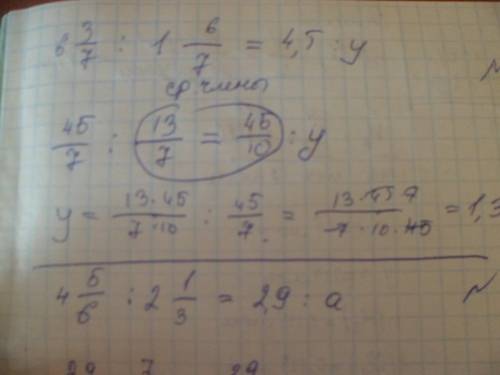 6 3/7 : 1 6/7 = 4,5 : y
ср. члены
45/7 : 13/7 = 45/10 : y
y = 13·45/7·10 : 45/7 = 13·45·7/7·10·45 = 1,3
4 5/6 : 2 1/3 = 2,9 : a
29 7 29